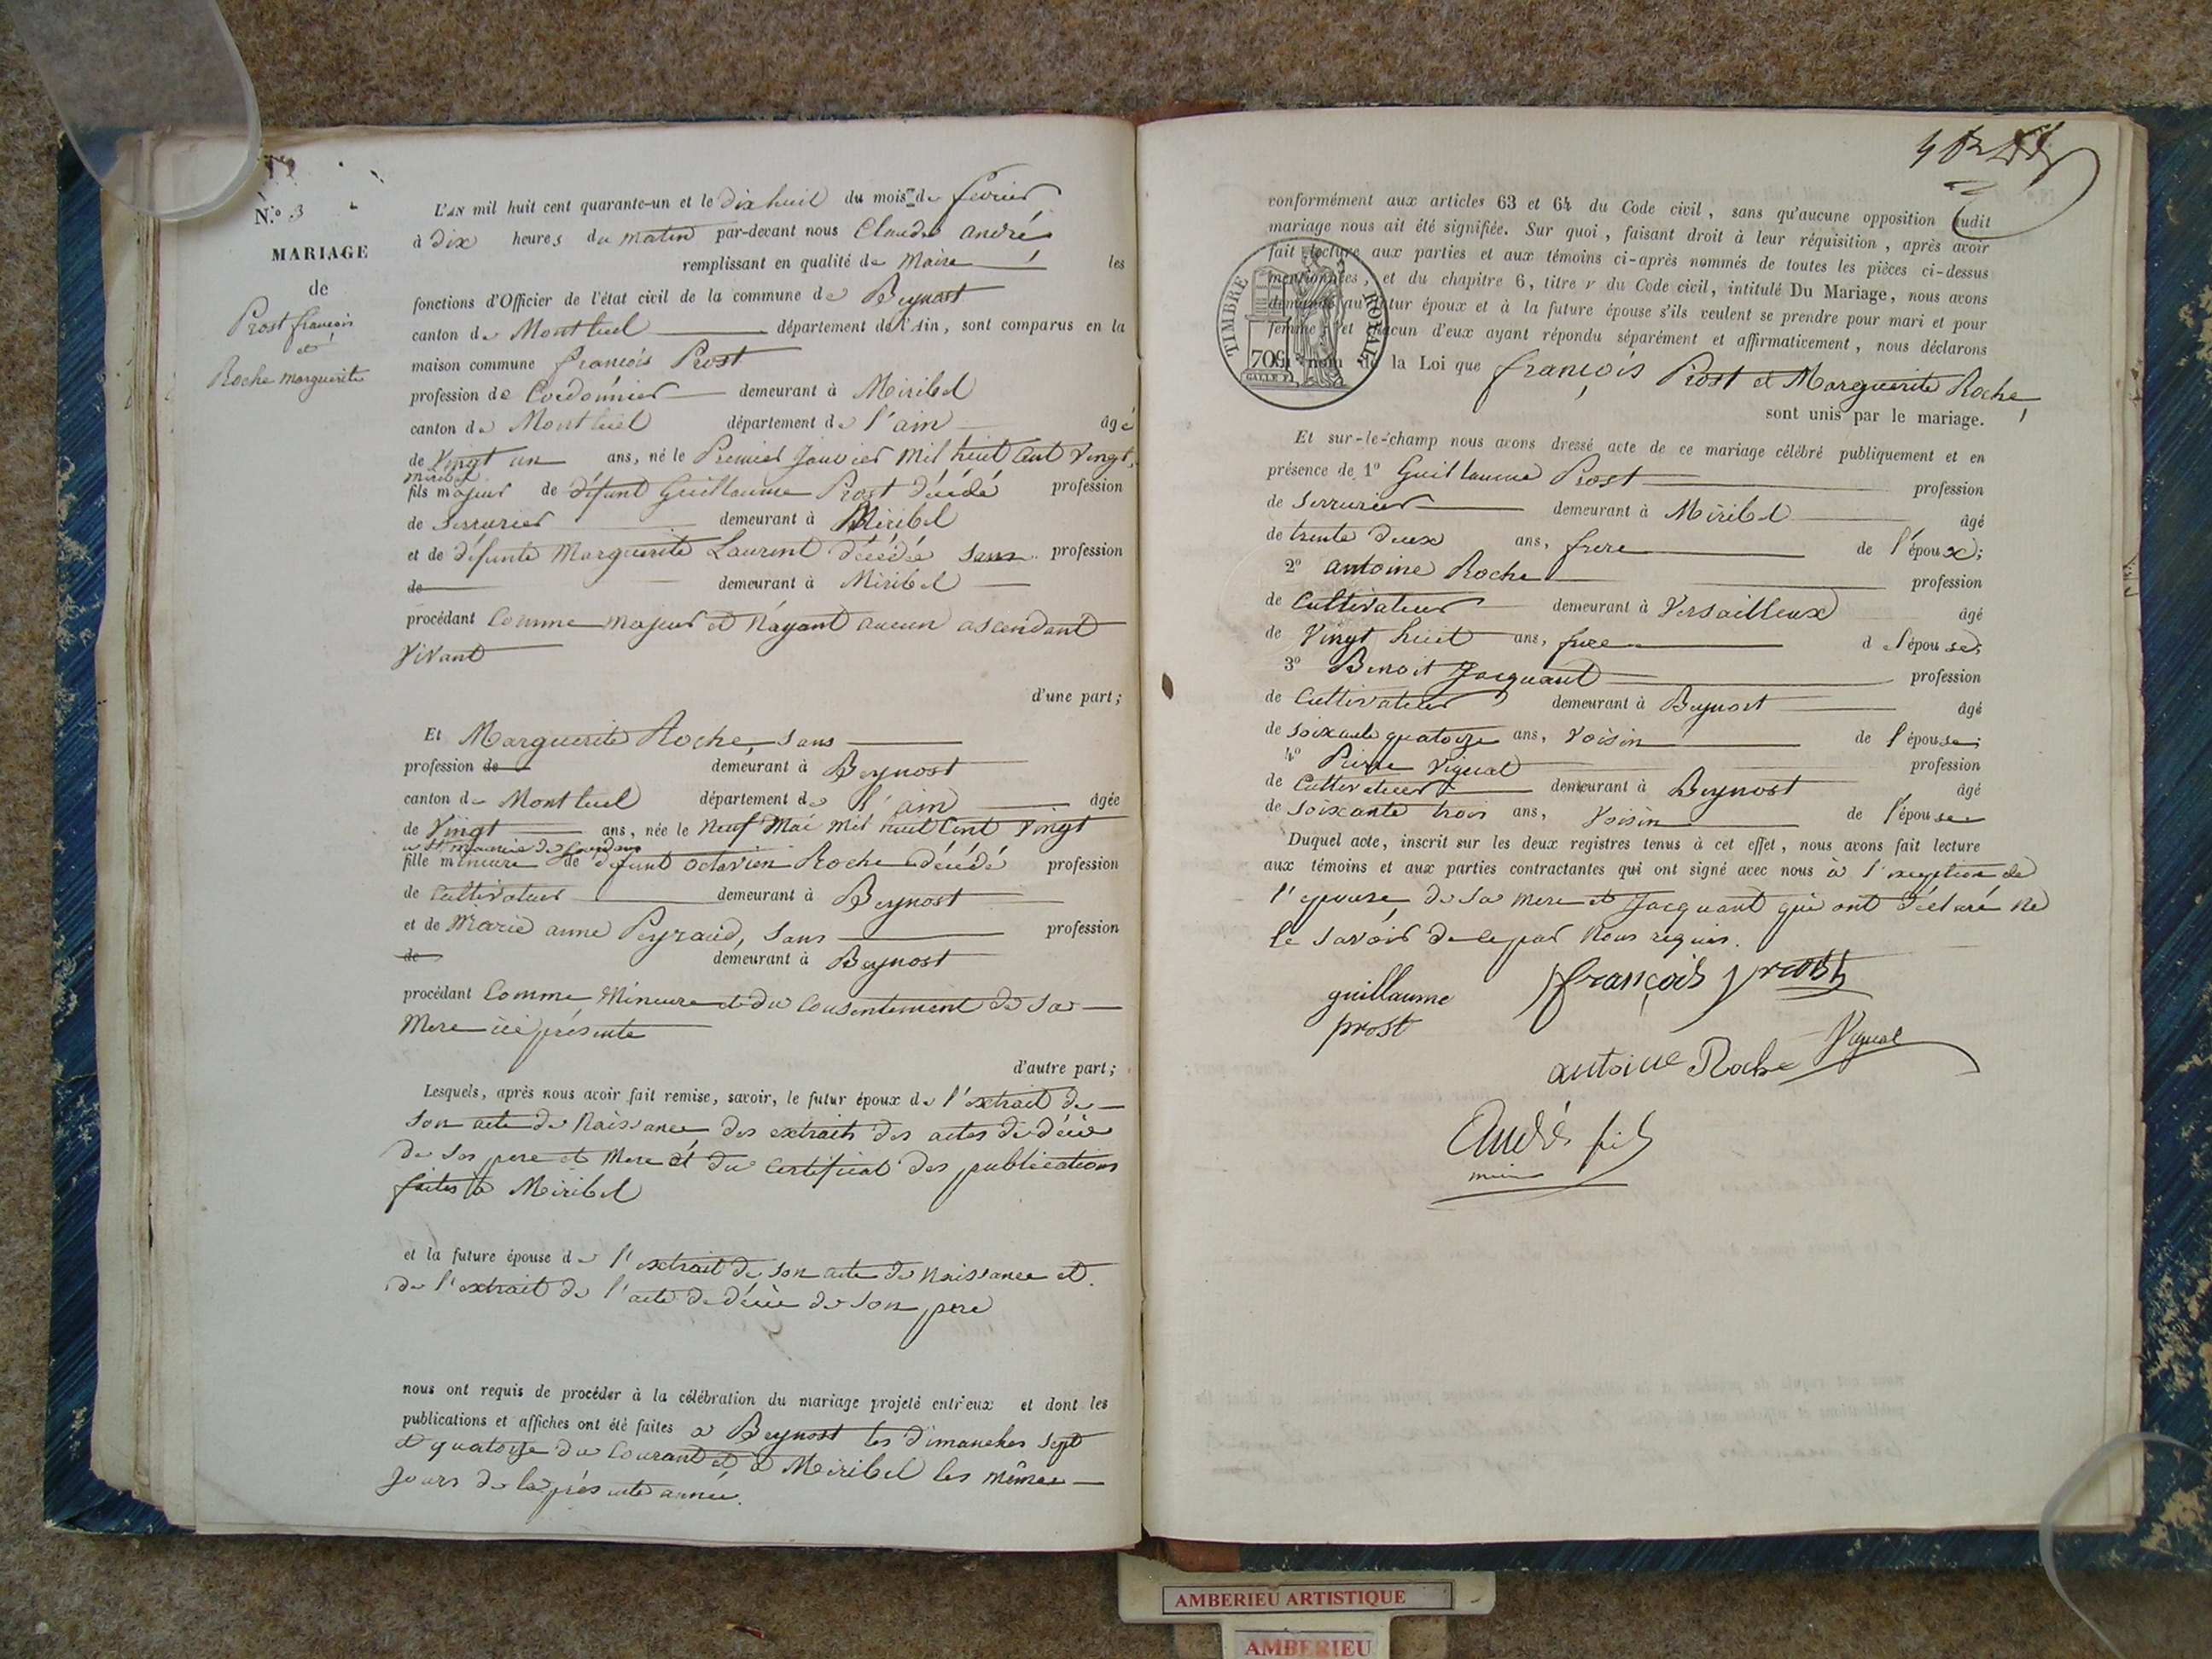 N.o 3
MARIAGE
de
Prost françois
et
Roche marguerite
L'AN mil huit cent quarante-un et le dix huit du mois de fevrier
à dix heures du matin par-devant nous Claude andré
remplissant en qualité de Maire les
fonctions d'Officier de l'état civil de la commune de Beynost
canton de Montluel département de l'Ain, sont comparus en la
maison commune françois Prost
profession de Cordonnier demeurant à Miribel
canton de Montluel département de l'ain âgé
de Vingt un ans, né le Premier Janvier Mil huit Cent Vingt,
miribel
fils majeur de défunt Guillaume Prost décédé profession
de Serrurier demeurant à Miribel
et de défunte Marguerite Laurent décédée sans profession
de demeurant à Miribel
procédant Comme majeur et N'ayant aucun ascendant
Vivant
d'une part;
Et Marguerite Roche, sans
profession de demeurant à Beynost
canton de Montluel département de l'ain âgée
de Vingt ans, née le Neuf Mai Mil huit Cent Vingt
a St maurice de
fille mineure de défunt octavien Roche décédé profession
de Cultivateur demeurant à Beynost
et de Marie anne Peyraud, sans profession
de demeurant à Beynost
procédant Comme Mineure et du Consentement de sa
Mere ici présente
d'autre part;
Lesquels, après nous avoir fait remise, savoir, le futur époux de l'extrait de
son acte de Naissance des extraits des actes de décès
de ses pere et Mere et du Certificat des publications
faites a Miribel
et la future épouse de l'extrait de son acte de Naissance et
de l'extrait de l'acte de décès de son pere
nous ont requis de procéder à la célébration du mariage projeté entr'eux et dont les
publications et affiches ont été faites a Beynost les dimanches sept
et quatorze du Courant et a Miribel les mêmes
jours de la présente année.
conformément aux articles 63 et 64 du Code civil, sans qu'aucune opposition audit
mariage nous ait été signifiée. Sur quoi, faisant droit à leur réquisition, après avoir
fait lecture aux parties et aux témoins ci-après nommés de toutes les pièces ci-dessus
mentionnées, et du chapitre 6, titre v du Code civil, intitulé Du Mariage, nous avons
demandé au futur époux et à la future épouse s'ils veulent se prendre pour mari et pour
femme; et chacun d'eux ayant répondu séparément et affirmativement, nous déclarons
au nom de la Loi que françois Prost et Marguerite Roche,
sont unis par le mariage.
TIMBRE ROYAL
70c
Et sur-le-champ nous avons dressé acte de ce mariage célébré publiquement et en
présence de 1o Guillaume Prost profession
de Serrurier demeurant à Miribel âgé
de trente deux ans, frere de l'époux;
2o antoine Roche profession
de Cultivateur demeurant à Versailleux âgé
de Vingt huit ans, frere de l'épouse;
3o Benoit Jacquant profession
de Cultivateur demeurant à Beynost âgé
de soixante quatorze ans, Voisin de l'épouse;
4o Pierre Vignat profession
de Cultivateur demeurant à Beynost âgé
de soixante trois ans, Voisin de l'épouse
Duquel acte, inscrit sur les deux registres tenus à cet effet, nous avons fait lecture
aux témoins et aux parties contractantes qui ont signé avec nous à l'exception de
l'epouse de sa mere et Jacquant qui ont déclaré ne
le savoir de ce par Nous requis.
guillaume
prost
françois prost
antoine Roche
Vignat
André fils
maire
AMBERIEU ARTISTIQUE
AMBERIEU